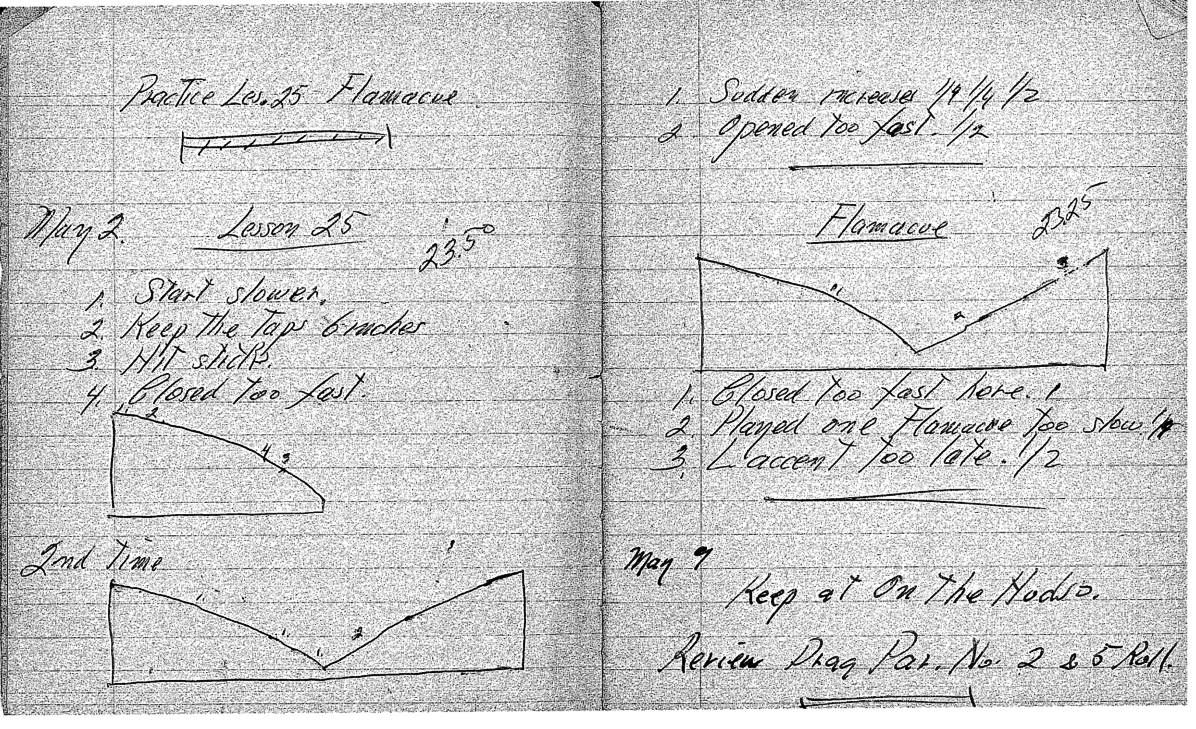 Practice Les. 25 Flamacue
May 2. Lesson 25 23.50
1. Start slower.
2. Keep the taps 6 inches
3. Hit sticks.
4. Closed too fast.
1. 2.
4 3
2nd Time
1.
1. 2
1.
1. Sudden increases 1/4 1/4 1/2
2 Opened too fast. 1/2
Flamacue 23.25
3
1
2
1. Closed too fast here. 1
2. Played one Flamacue too slow 1/4
3. L accent too late. 1/2
May 9
Keep at On The
Review Drag Par. No. 2 & 5 Roll.